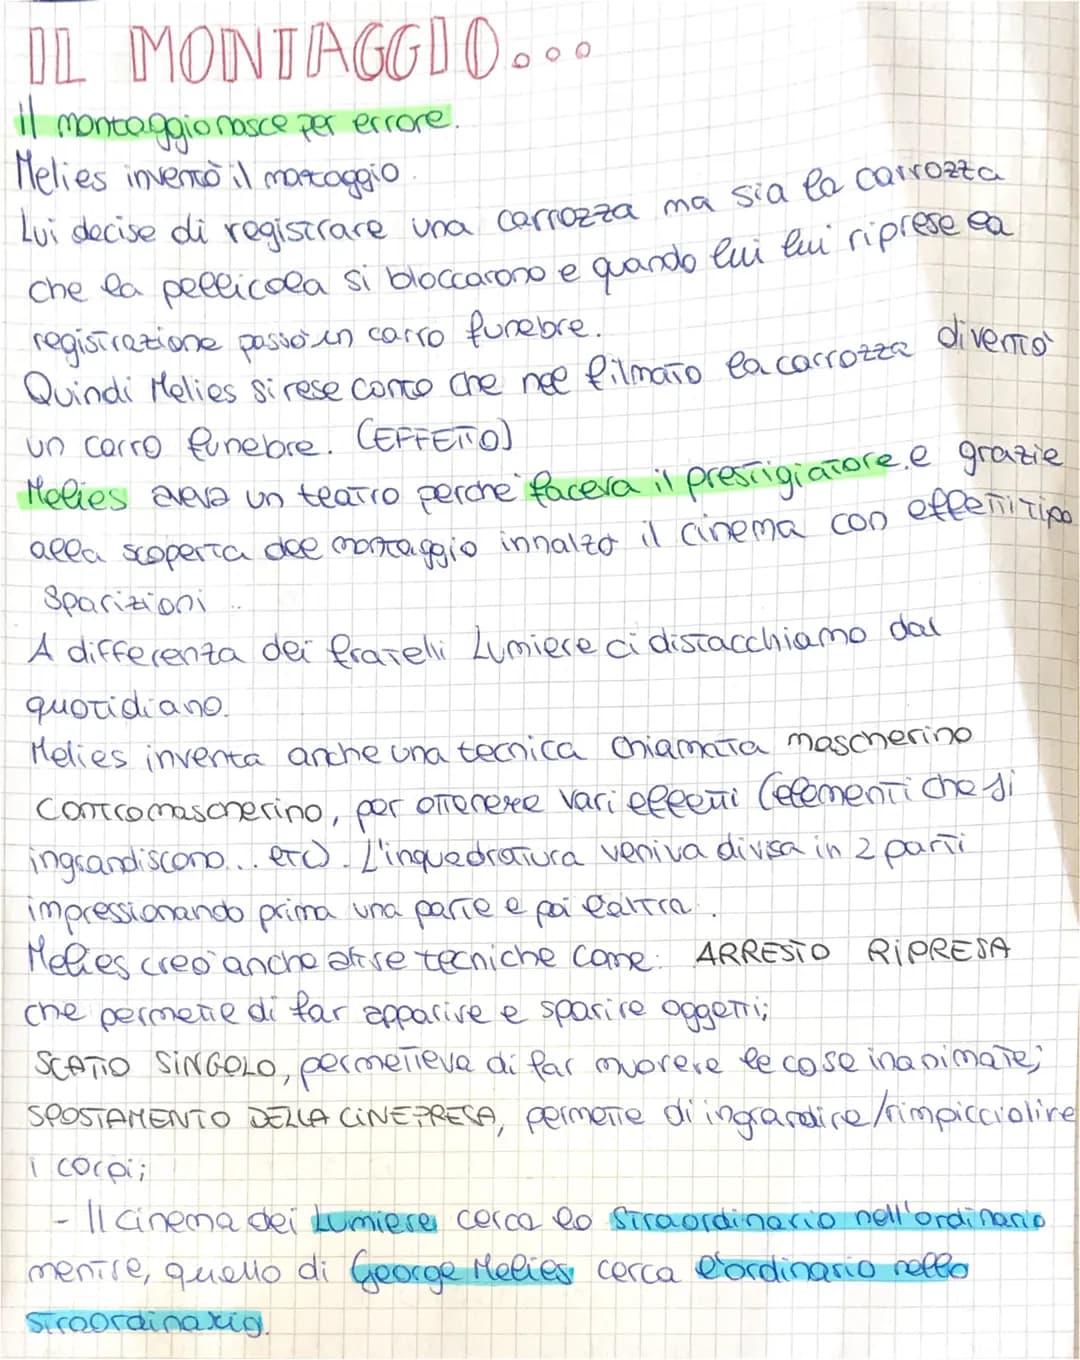 IL MONTAGGIO...
Il montaggio nasce per errore.
Melies inventò il montaggio.
Lui decise di registrare una carrozza ma sia la carrozza
che la pellicola si bloccarono e quando lui lui riprese la
registrazione passò un carro funebre.
Quindi Melies si rese conto che nel filmato la carrozza diventò
un carro funebre. (EFFETTO)
Melies aveva un teatro perché faceva il prestigiatore e grazie
alla scoperta del montaggio innalzò il cinema con effetti tipo
sparizioni..
A differenza dei fratelli Lumiere ci distacchiamo dal
quotidiano.
Melies inventa anche una tecnica chiamata mascherino
contromascherino, per ottenere vari effetti (elementi che si
ingrandiscono... etc). L'inquadratura veniva divisa in 2 parti
impressionando prima una parte e poi l'altra.
Melies creò anche altre tecniche come: ARRESTO RIPRESA
che permette di far apparire e sparire oggetti;
SCATTO SINGOLO, permetteva di far muovere le cose inanimate;
SPOSTAMENTO DELLA CINEPRESA, permette di ingrandire/rimpicciolire
i corpi;
- Il cinema dei Lumiere cerca lo straordinario nell'ordinario
mentre, quello di George Melies cerca l'ordinario nello
straordinario.